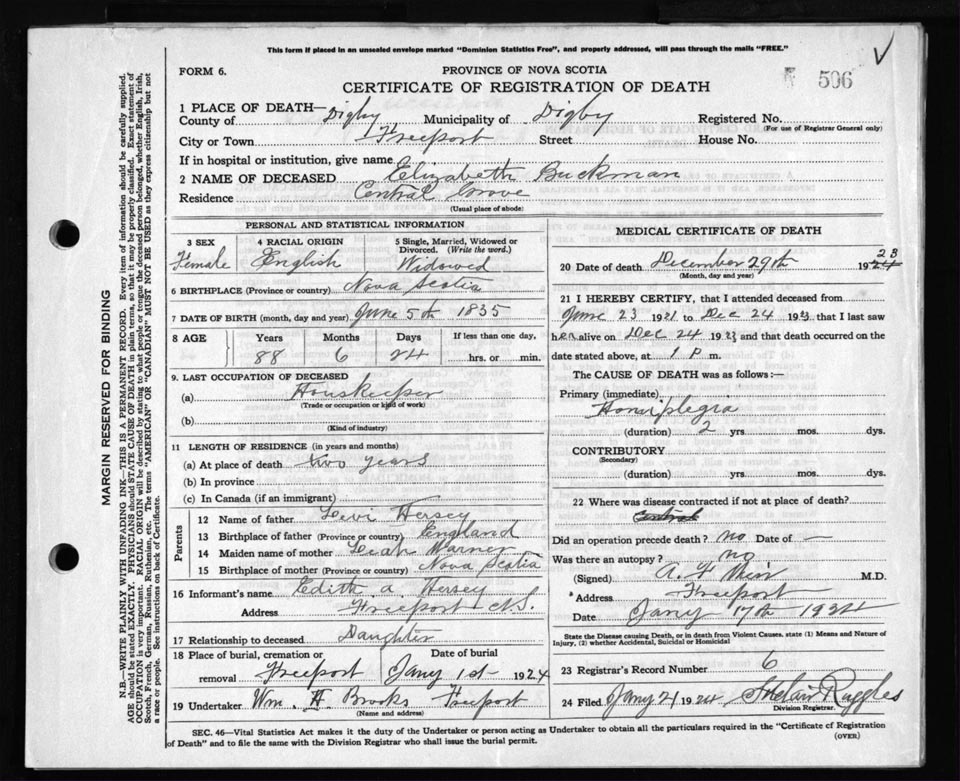 This form if placed in an unsealed envelope marked "Dominion Statistics Free", and properly addressed, will pass through the mails "FREE."
FORM 6.
PROVINCE OF NOVA SCOTIA
506
CERTIFICATE OF REGISTRATION OF DEATH
1 PLACE OF DEATH—
County of Digby Municipality of Digby Registered No.
(For use of Registrar General only)
City or Town Freeport Street House No.
If in hospital or institution, give name
2 NAME OF DECEASED Elizabeth Buckman
Residence Central Grove
(Usual place of abode)
PERSONAL AND STATISTICAL INFORMATION
3 SEX 4 RACIAL ORIGIN 5 Single, Married, Widowed or Divorced. (Write the word.)
Female English Widowed
6 BIRTHPLACE (Province or country) Nova Scotia
7 DATE OF BIRTH (month, day and year) June 5th 1835
8 AGE Years Months Days If less than one day,
88 6 24 hrs. or min.
9. LAST OCCUPATION OF DECEASED
(a) Houskeeper
(Trade or occupation or kind of work)
(b)
(Kind of industry)
11 LENGTH OF RESIDENCE (in years and months)
(a) At place of death two years
(b) In province
(c) In Canada (if an immigrant)
Parents
12 Name of father Levi Hersey
13 Birthplace of father (Province or country) England
14 Maiden name of mother Leah Warner
15 Birthplace of mother (Province or country) Nova Scotia
16 Informant's name Edith A. Hersey
Address Freeport N.S.
17 Relationship to deceased Daughter
18 Place of burial, cremation or removal Date of burial
Freeport Jany 1st 1924
19 Undertaker Wm. H Brooks Freeport
(Name and address)
MEDICAL CERTIFICATE OF DEATH
20 Date of death December 29th 1924 23
(Month, day and year)
21 I HEREBY CERTIFY, that I attended deceased from
June 23 1921 to Dec 24 1923 that I last saw
her alive on Dec 24 1923 and that death occurred on the
date stated above, at 1 P m.
The CAUSE OF DEATH was as follows:—
Primary (immediate)
(duration) 2 yrs mos. dys.
CONTRIBUTORY
(Secondary)
(duration) yrs. mos. dys.
22 Where was disease contracted if not at place of death?
Central
Did an operation precede death? no Date of —
Was there an autopsy? no
(Signed) M.D.
Address Freeport
Date Jany 17th 1924
State the Disease causing Death, or in death from Violent Causes, state (1) Means and Nature of
Injury, (2) whether Accidental, Suicidal or Homicidal
23 Registrar's Record Number 6
24 Filed Jany 21 1924 Ruggles
Division Registrar.
SEC. 46—Vital Statistics Act makes it the duty of the Undertaker or person acting as Undertaker to obtain all the particulars required in the "Certificate of Registration
of Death" and to file the same with the Division Registrar who shall issue the burial permit.
(OVER)
MARGIN RESERVED FOR BINDING
N.B.—WRITE PLAINLY WITH UNFADING INK—THIS IS A PERMANENT RECORD. Every item of information should be carefully supplied.
AGE should be stated EXACTLY. PHYSICIANS should STATE CAUSE OF DEATH in plain terms, so that it may be properly classified. Exact statement of
OCCUPATION is very important. RACIAL ORIGIN will be described by stating to what people or tongue the deceased person belonged, whether English, Irish,
Scotch, French, German, Russian, Ruthenian, etc. The terms "AMERICAN" or "CANADIAN" MUST NOT BE USED as they express citizenship but not
a race or people. See instructions on back of Certificate.